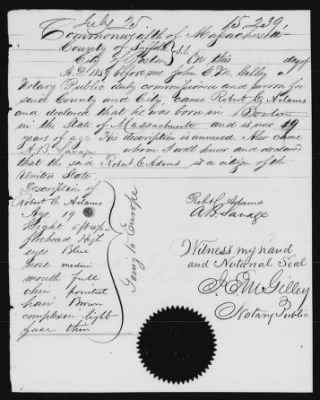 July 25 15,239,
Commonwealth of Massachusetts
County of Suffolk } ss.
City of Boston } On this day of
A.D. 1859 before me John E. M. Gilley a
Notary Public duly commissioned and sworn for
said County and City, came Robert C. Adams
and declared that he was born in Boston
in the State of Massachusetts and is now 19
years of age. His description is annexed. Also came
A. B. Savage whom I well know and declared
that the said Robert C Adams is a citizen of the
United States.
Description of
Robert C. Adams
Age 19
Hight
forehead High
eyes Blue
nose medium
mouth full
chin pointed
hair Brown
complexion light
face thin
Going to Europe
Robt C. Adams
A B. Savage
Witness my hand
and Notarial Seal
J. E. M. Gilley
Notary Public